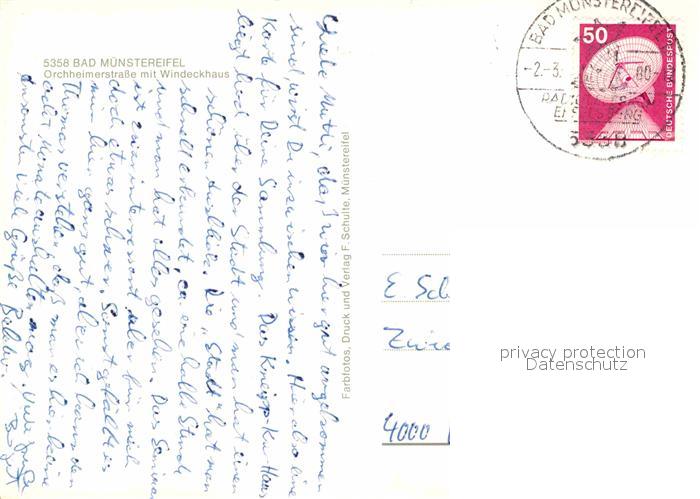 5358 BAD MÜNSTEREIFEL
Orchheimerstraße mit Windeckhaus
Liebe Mutti, daß wir hier gut angekommen
sind, wirst Du inzwischen wissen. Hier also eine
Karte für Deine Sammlung. Das Kneipp-Kurhaus
liegt hoch über der Stadt und man hat einen
schönen Ausblick. Die "Stadt" hat man
schnell erkundet, ca eine halbe Stunde
und man hat alles gesehen. Das Seminar
ist zwar interessant, aber für mich
doch etwas schwer. Sonst gefällt es
mir hier ganz gut, aber ich kann den
Thomas verstehen, daß man es hier keine
acht Monate aushalten mag.
Ansonsten viele Grüße
Farbfotos, Druck und Verlag F. Schulte, Münstereifel
BAD MÜNSTEREIFEL
-2.-3. 80-
EFFELSBERG
5358
50
DEUTSCHE BUNDESPOST
E. Sch
4000
privacy protection
Datenschutz